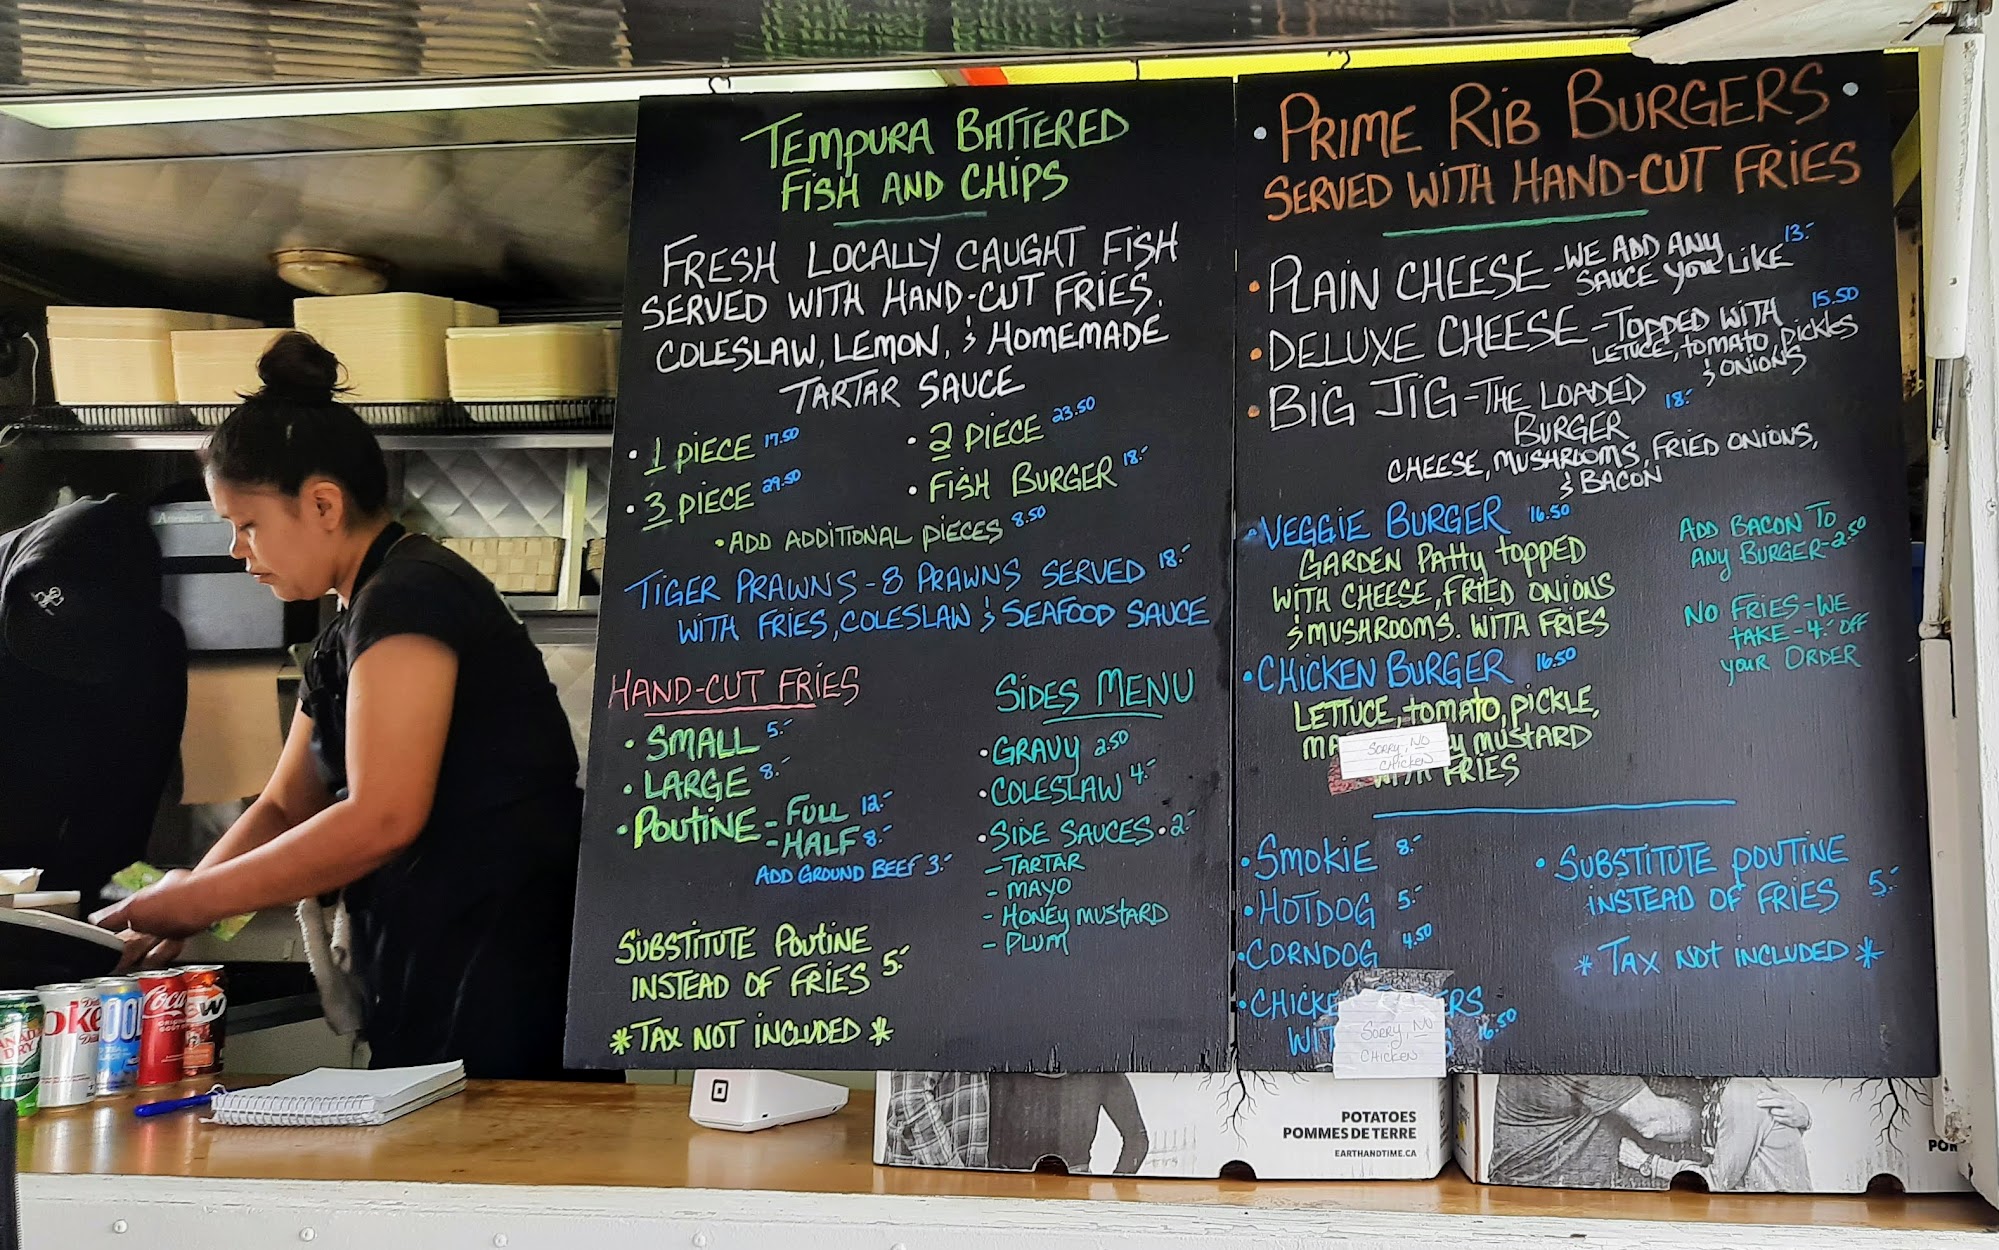 TEMPURA BATTERED
FISH AND CHIPS
FRESH LOCALLY CAUGHT FISH
SERVED WITH HAND-CUT FRIES.
COLESLAW, LEMON, & HOMEMADE
TARTAR SAUCE
• 1 PIECE 17.50
• 2 PIECE 23.50
• 3 PIECE 29.50
• FISH BURGER 18.-
• ADD ADDITIONAL PIECES 8.50
TIGER PRAWNS - 8 PRAWNS SERVED 18.-
WITH FRIES, COLESLAW & SEAFOOD SAUCE
HAND-CUT FRIES
• SMALL 5.-
• LARGE 8.-
• POUTINE - FULL 12.-
- HALF 8.-
ADD GROUND BEEF 3.-
SUBSTITUTE POUTINE
INSTEAD OF FRIES 5.-
* TAX NOT INCLUDED *
SIDES MENU
• GRAVY 2.50
• COLESLAW 4.-
• SIDE SAUCES • 2.-
- TARTAR
- MAYO
- HONEY MUSTARD
- PLUM
• PRIME RIB BURGERS •
SERVED WITH HAND-CUT FRIES
• PLAIN CHEESE - WE ADD ANY 13.-
SAUCE YOU LIKE
• DELUXE CHEESE - TOPPED WITH 15.50
LETUCE, TOMATO, PICKLES
& ONIONS
• BIG JIG - THE LOADED 18.-
BURGER
CHEESE, MUSHROOMS, FRIED ONIONS,
& BACON
• VEGGIE BURGER 16.50
GARDEN PATTY TOPPED
WITH CHEESE, FRIED ONIONS
& MUSHROOMS. WITH FRIES
ADD BACON TO
ANY BURGER - 2.50
NO FRIES - WE
TAKE - 4.- OFF
YOUR ORDER
• CHICKEN BURGER 16.50
LETTUCE, TOMATO, PICKLE,
MUSTARD
WITH FRIES
SORRY, NO
CHICKEN
• SMOKIE 8.-
• HOTDOG 5.-
• CORNDOG 4.50
16.50
SORRY, NO
CHICKEN
• SUBSTITUTE POUTINE
INSTEAD OF FRIES 5.-
* TAX NOT INCLUDED *
CANADA
DRY
Coca
A&W
POTATOES
POMMES DE TERRE
EARTHANDTIME.CA